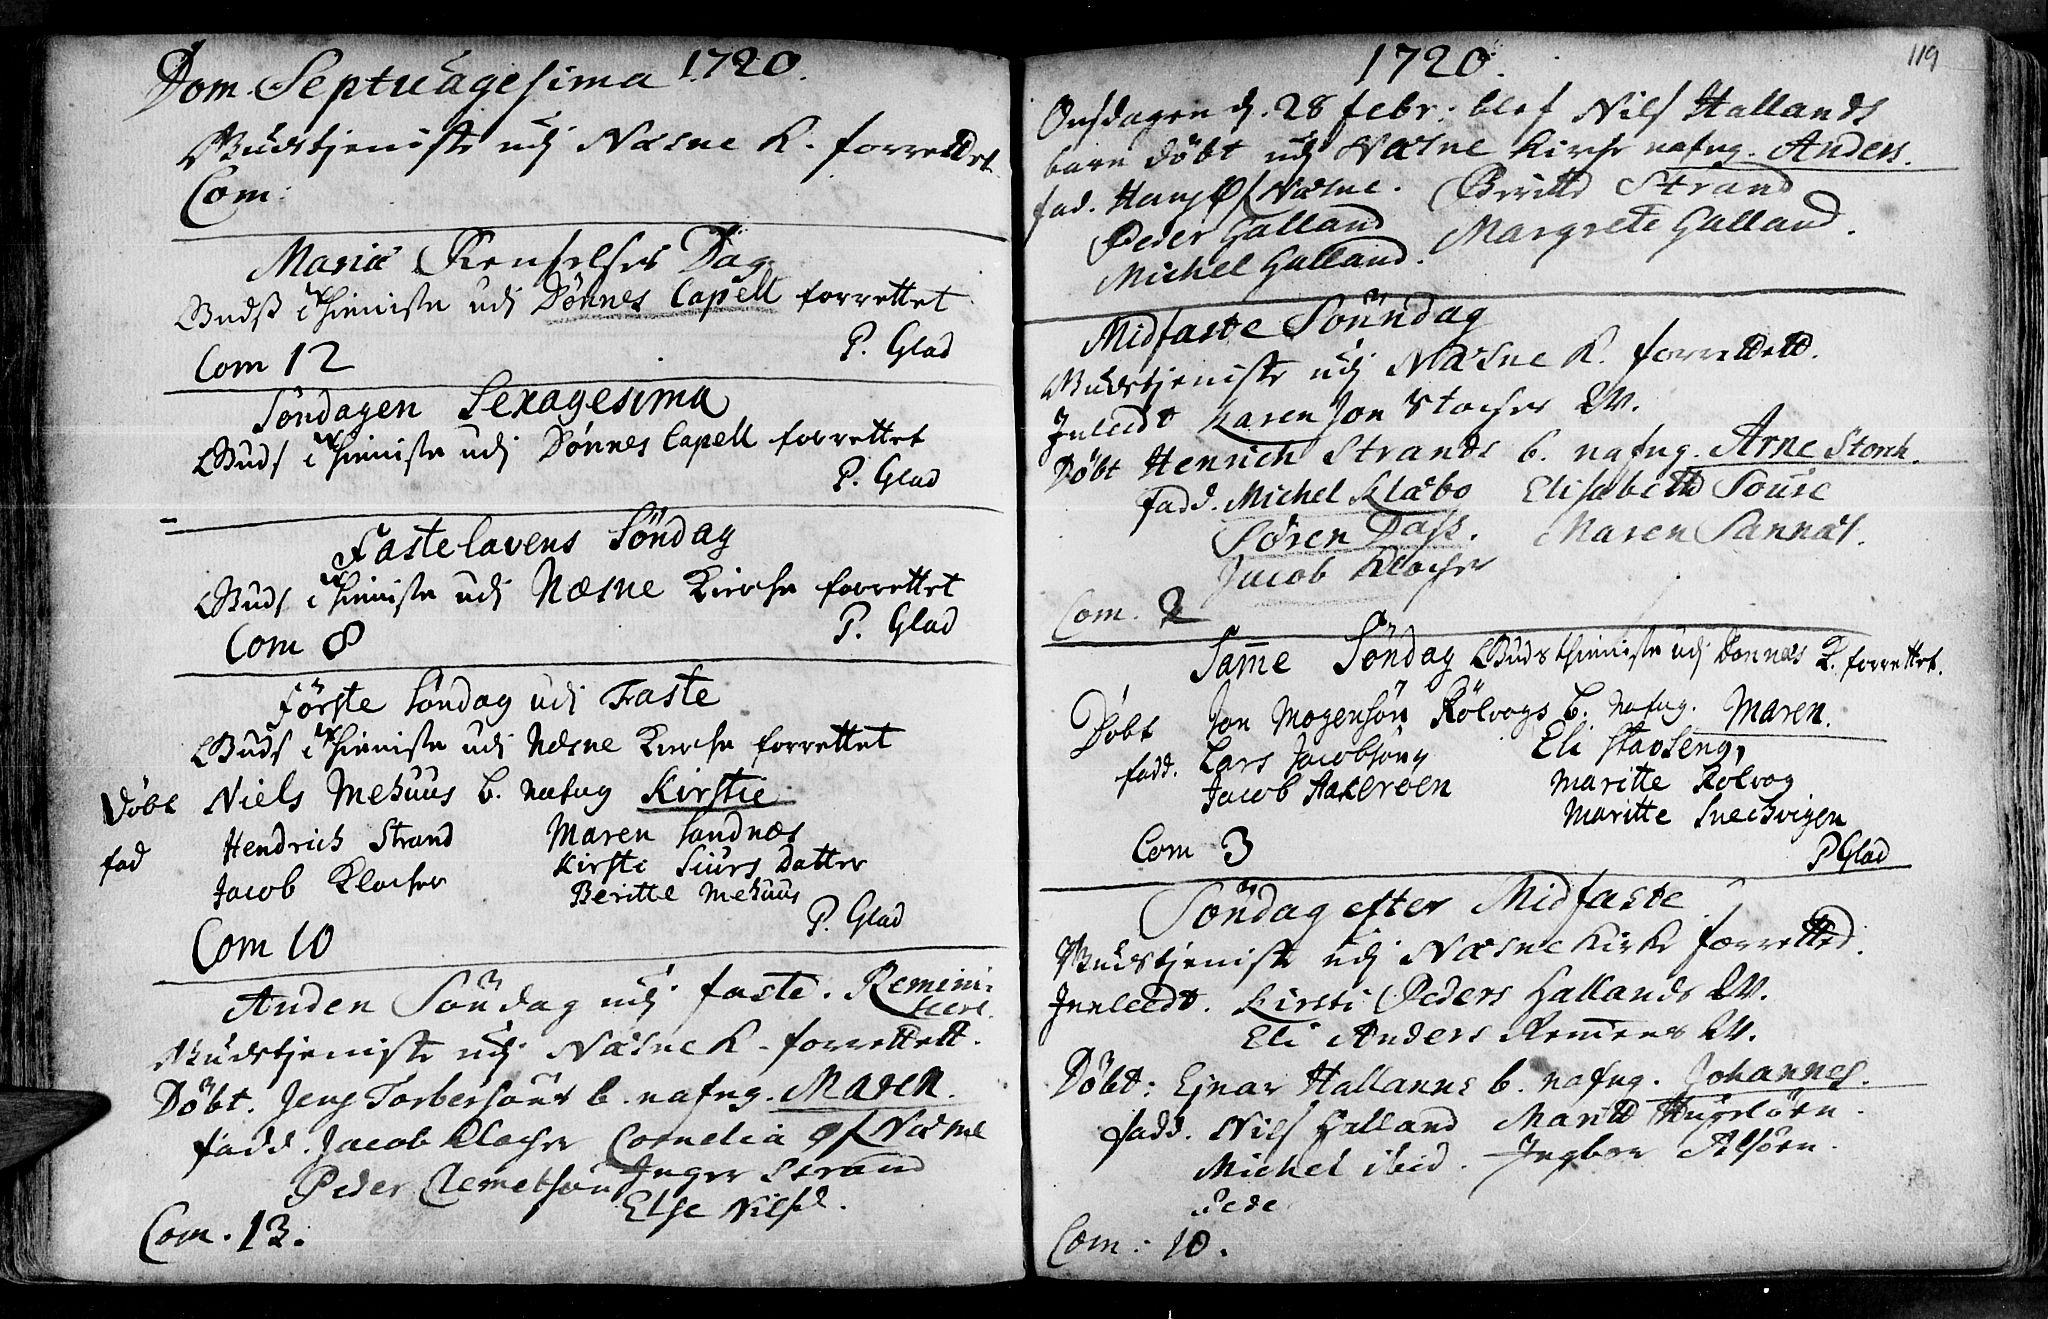 1720.
Dom. Septuagesima
Gudstjeniste udj Næsne K. forrettet
Com:
Mariæ Renselses Dag
Gudsthieniste udj Dønnes Capell forrettet
P. Glad
Com 12
Søndagen Sexagesima
Guds thieniste udj Dønnes Capell forrettet
P. Glad
Fastelavens Söndag
Guds thieniste udj Næsne Kirche forrettet
P. Glad
Com 8
Förste Söndag udi Faste
Guds thieniste udj Næsne Kirche forrettet
Döbt Niels Mehuus b. nafng Kirstie
fad Hendrich Strand Maren Sandnæs
Jacob Klocher Kirsti Siurs Datter
Beritte Mehuus
P. Glad
Com 10
Anden Söndag udj faste. Remini-
scere.
Gudstjeniste udj Næsne K. forrettett.
Döbt. Jens Torbersöns b. nafng. Maren.
fadd. Jacob Klocher Cornelia Næsne
Peder Clemetsön Inger Strand
Else Nilsd.
Com. 13.
119
1720.
Onsdagen d. 28 febr. blef Nils Hallands
barn döbt udj Næsne Kirche nafng. Anders.
fad. Hans Næsne. Beritte Strand
Peder Halland Margrete Halland.
Michel Halland.
Midfaste Sönndag
Gudstjeniste udj Næsne K. forrettett.
Inleedt Karen Jon Stochers W.
Döbt Henrich Strands b. nafng. Arne Storch.
fadd. Michel Klæbo Elisabeth
Sören Dass. Maren Sannæs.
Jacob Klocher
Com. 2
Same Söndag Guds thieniste udj Dönnæs K. forrettet.
Döbt Jon Mogensön Rölvogs b. nafng. Maren.
fadd. Lars Jacobsöng Eli Stavseng,
Jacob Aakeröen Maritte Rölvog
Maritte Snechvigen
Com 3
P Glad
Söndag efter Midfaste
Gudstjeniste udj Næsne Kirke forretted.
Innleedt. Kirsti Peders Hallands W.
Eli Anders W.
Döbt: Ejnar Hallanns b. nafng. Johannes.
fadd. Nils Halland Maritt
Michel ibid. Ingbor Alsöen.
Com: 10.